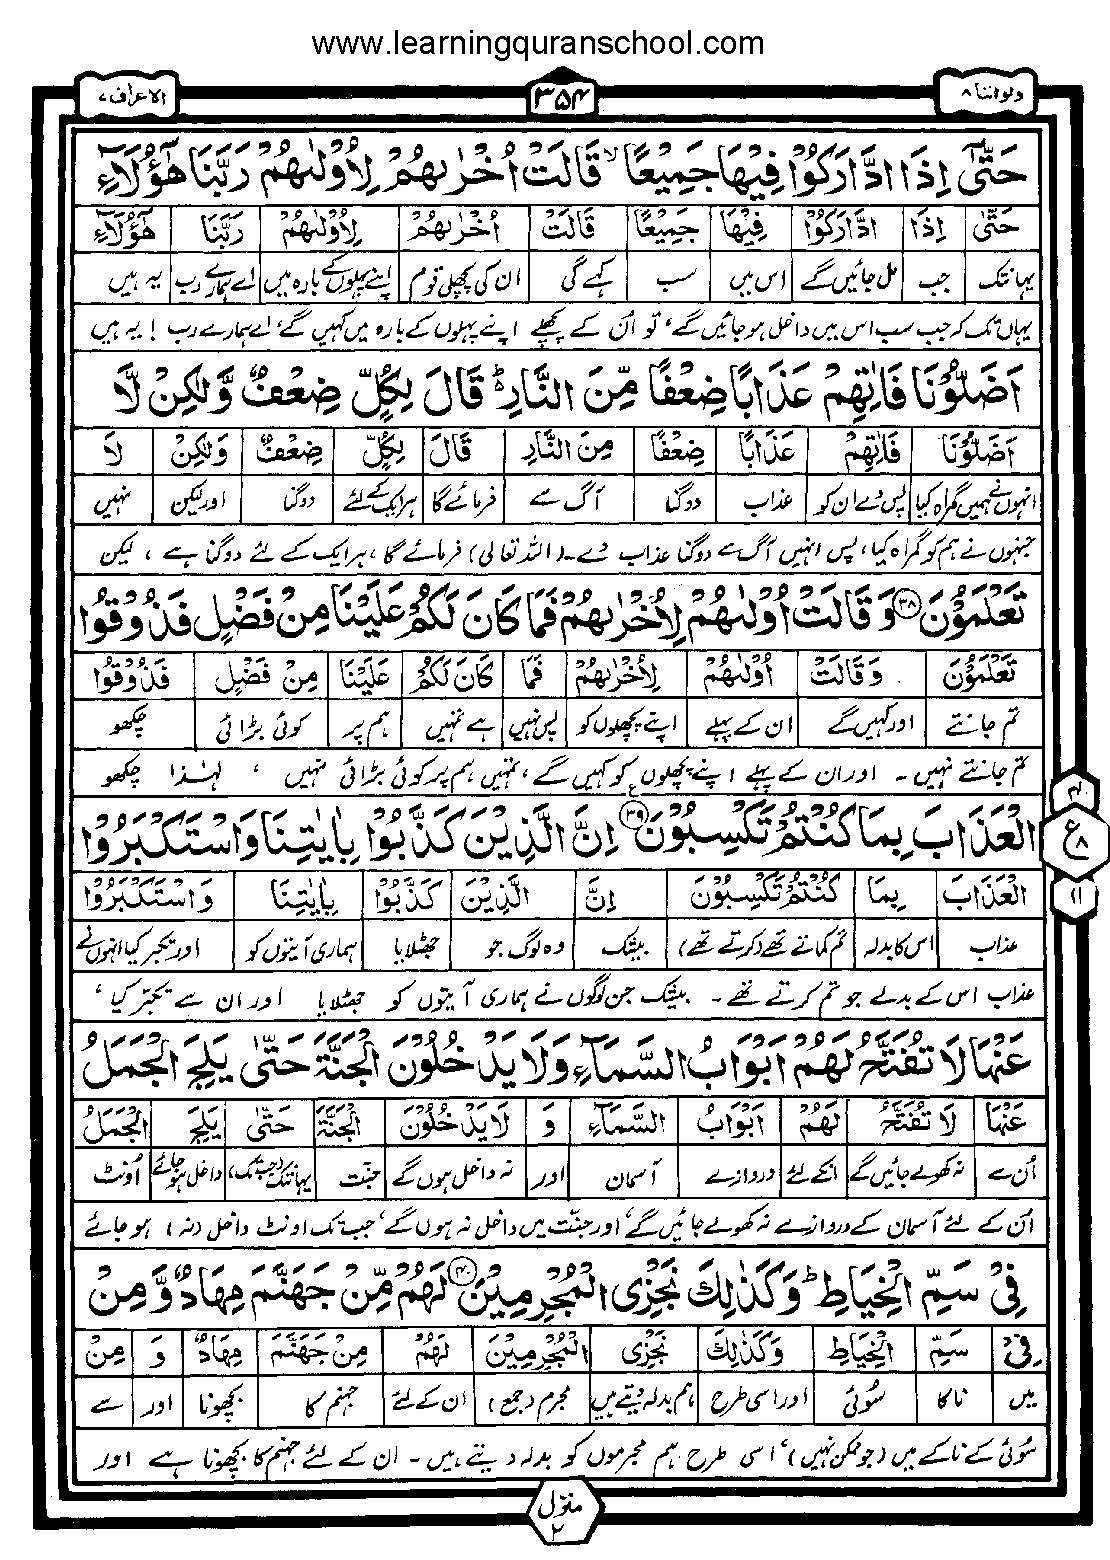 www.learningquranschool.com
ولواننا ۸
۳۵۴
الاعراف ۷
حَتّٰٓى اِذَا ادَّارَكُوْا فِيْهَا جَمِيْعًا ۙ قَالَتْ اُخْرٰىهُمْ لِاُوْلٰىهُمْ رَبَّنَا هٰٓؤُلَآءِ
حَتّٰٓى اِذَا ادَّارَكُوْا فِيْهَا جَمِيْعًا قَالَتْ اُخْرٰىهُمْ لِاُوْلٰىهُمْ رَبَّنَا هٰٓؤُلَآءِ
یہانتک جب مل جائیں گے اس میں سب کہے گی ان کی پچھلی قوم اپنے پہلوں کے بارہ میں اے ہمارے رب یہ ہیں
یہاں تک کہ جب سب اس میں داخل ہو جائیں گے، تو اُن کے پچھلے اپنے پہلوں کے بارہ میں کہیں گے، اے ہمارے رب ! یہ ہیں
اَضَلُّوْنَا فَاٰتِهِمْ عَذَابًا ضِعْفًا مِّنَ النَّارِ ؕ قَالَ لِكُلٍّ ضِعْفٌ وَّلٰكِنْ لَّا
اَضَلُّوْنَا فَاٰتِهِمْ عَذَابًا ضِعْفًا مِنَ النَّارِ قَالَ لِكُلٍّ ضِعْفٌ وَلٰكِنْ لَا
انہوں نے ہمیں گمراہ کیا پس دے ان کو عذاب دوگنا آگ سے فرمائے گا ہر ایک کے لئے دوگنا اور لیکن نہیں
جنہوں نے ہم کو گمراہ کیا، پس انہیں آگ سے دوگنا عذاب دے۔ (اللہ تعالی) فرمائے گا، ہر ایک کے لئے دوگنا ہے ، لیکن
تَعْلَمُوْنَ ۳۸ وَقَالَتْ اُوْلٰىهُمْ لِاُخْرٰىهُمْ فَمَا كَانَ لَكُمْ عَلَيْنَا مِنْ فَضْلٍ فَذُوْقُوا
تَعْلَمُوْنَ وَقَالَتْ اُوْلٰىهُمْ لِاُخْرٰىهُمْ فَمَا كَانَ لَكُمْ عَلَيْنَا مِنْ فَضْلٍ فَذُوْقُوا
تم جانتے اور کہیں گے ان کے پہلے اپنے پچھلوں کو پس نہیں ہے تمہیں ہم پر کوئی بڑائی چکھو
تم جانتے نہیں۔ اور ان کے پہلے اپنے پچھلوں کو کہیں گے، تمہیں ہم پر کوئی بڑائی نہیں ، لہٰذا چکھو
الْعَذَابَ بِمَا كُنْتُمْ تَكْسِبُوْنَ ۳۹ اِنَّ الَّذِيْنَ كَذَّبُوْا بِاٰيٰتِنَا وَاسْتَكْبَرُوْا
ع
۸
۱۱
الْعَذَابَ بِمَا كُنْتُمْ تَكْسِبُوْنَ اِنَّ الَّذِيْنَ كَذَّبُوْا بِاٰيٰتِنَا وَاسْتَكْبَرُوْا
عذاب اس کا بدلہ تم کماتے تھے (کرتے تھے) بیشک وہ لوگ جو جھٹلایا ہماری آیتوں کو اور تکبر کیا انہوں نے
عذاب اس کے بدلے جو تم کرتے تھے۔ بیشک جن لوگوں نے ہماری آیتوں کو جھٹلایا اور ان سے تکبّر کیا ،
عَنْهَا لَا تُفَتَّحُ لَهُمْ اَبْوَابُ السَّمَآءِ وَلَا يَدْخُلُوْنَ الْجَنَّةَ حَتّٰى يَلِجَ الْجَمَلُ
عَنْهَا لَا تُفَتَّحُ لَهُمْ اَبْوَابُ السَّمَآءِ وَ لَا يَدْخُلُوْنَ الْجَنَّةَ حَتّٰى يَلِجَ الْجَمَلُ
اُن سے نہ کھولے جائیں گے انکے لئے دروازے آسمان اور نہ داخل ہوں گے جنّت یہانتک (جبتک) داخل ہو جائے اُونٹ
اُن کے لئے آسمان کے دروازے نہ کھولے جائیں گے، اور جنّت میں داخل نہ ہوں گے، جب تک اونٹ داخل (نہ) ہو جائے
فِيْ سَمِّ الْخِيَاطِ ؕ وَكَذٰلِكَ نَجْزِى الْمُجْرِمِيْنَ ۴۰ لَهُمْ مِّنْ جَهَنَّمَ مِهَادٌ وَّمِنْ
فِيْ سَمِّ الْخِيَاطِ وَكَذٰلِكَ نَجْزِى الْمُجْرِمِيْنَ لَهُمْ مِنْ جَهَنَّمَ مِهَادٌ وَ مِنْ
میں ناکا سُوئی اور اسی طرح ہم بدلہ دیتے ہیں مجرم (جمع) ان کے لئے جہنم کا بچھونا اور سے
سُوئی کے ناکے میں (جو ممکن نہیں)، اسی طرح ہم مجرموں کو بدلہ دیتے ہیں۔ ان کے لئے جہنم کا بچھونا ہے اور
منزل
۲